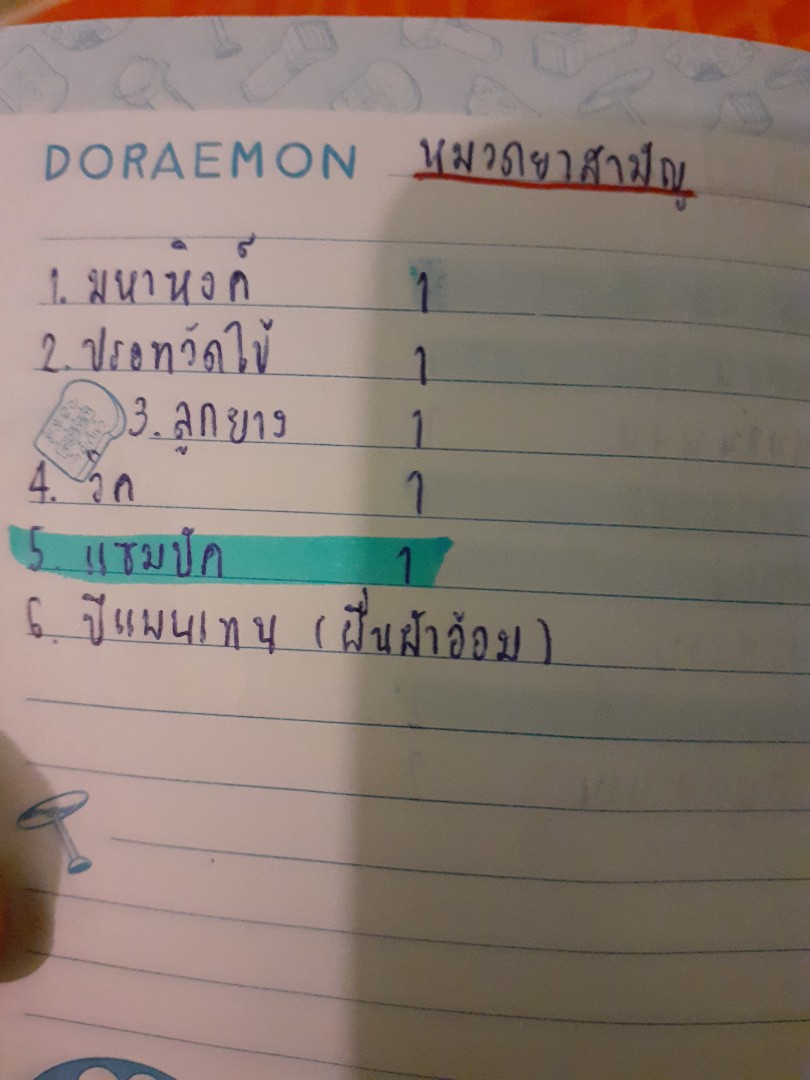 DORAEMON หมวดยาสามัญ
1. มหาหิงค์ 1
2. ปรอทวัดไข้ 1
3. ลูกยาง 1
4. วิค 1
5. แซมบัค 1
6. บีแพนเทน (ผื่นผ้าอ้อม)